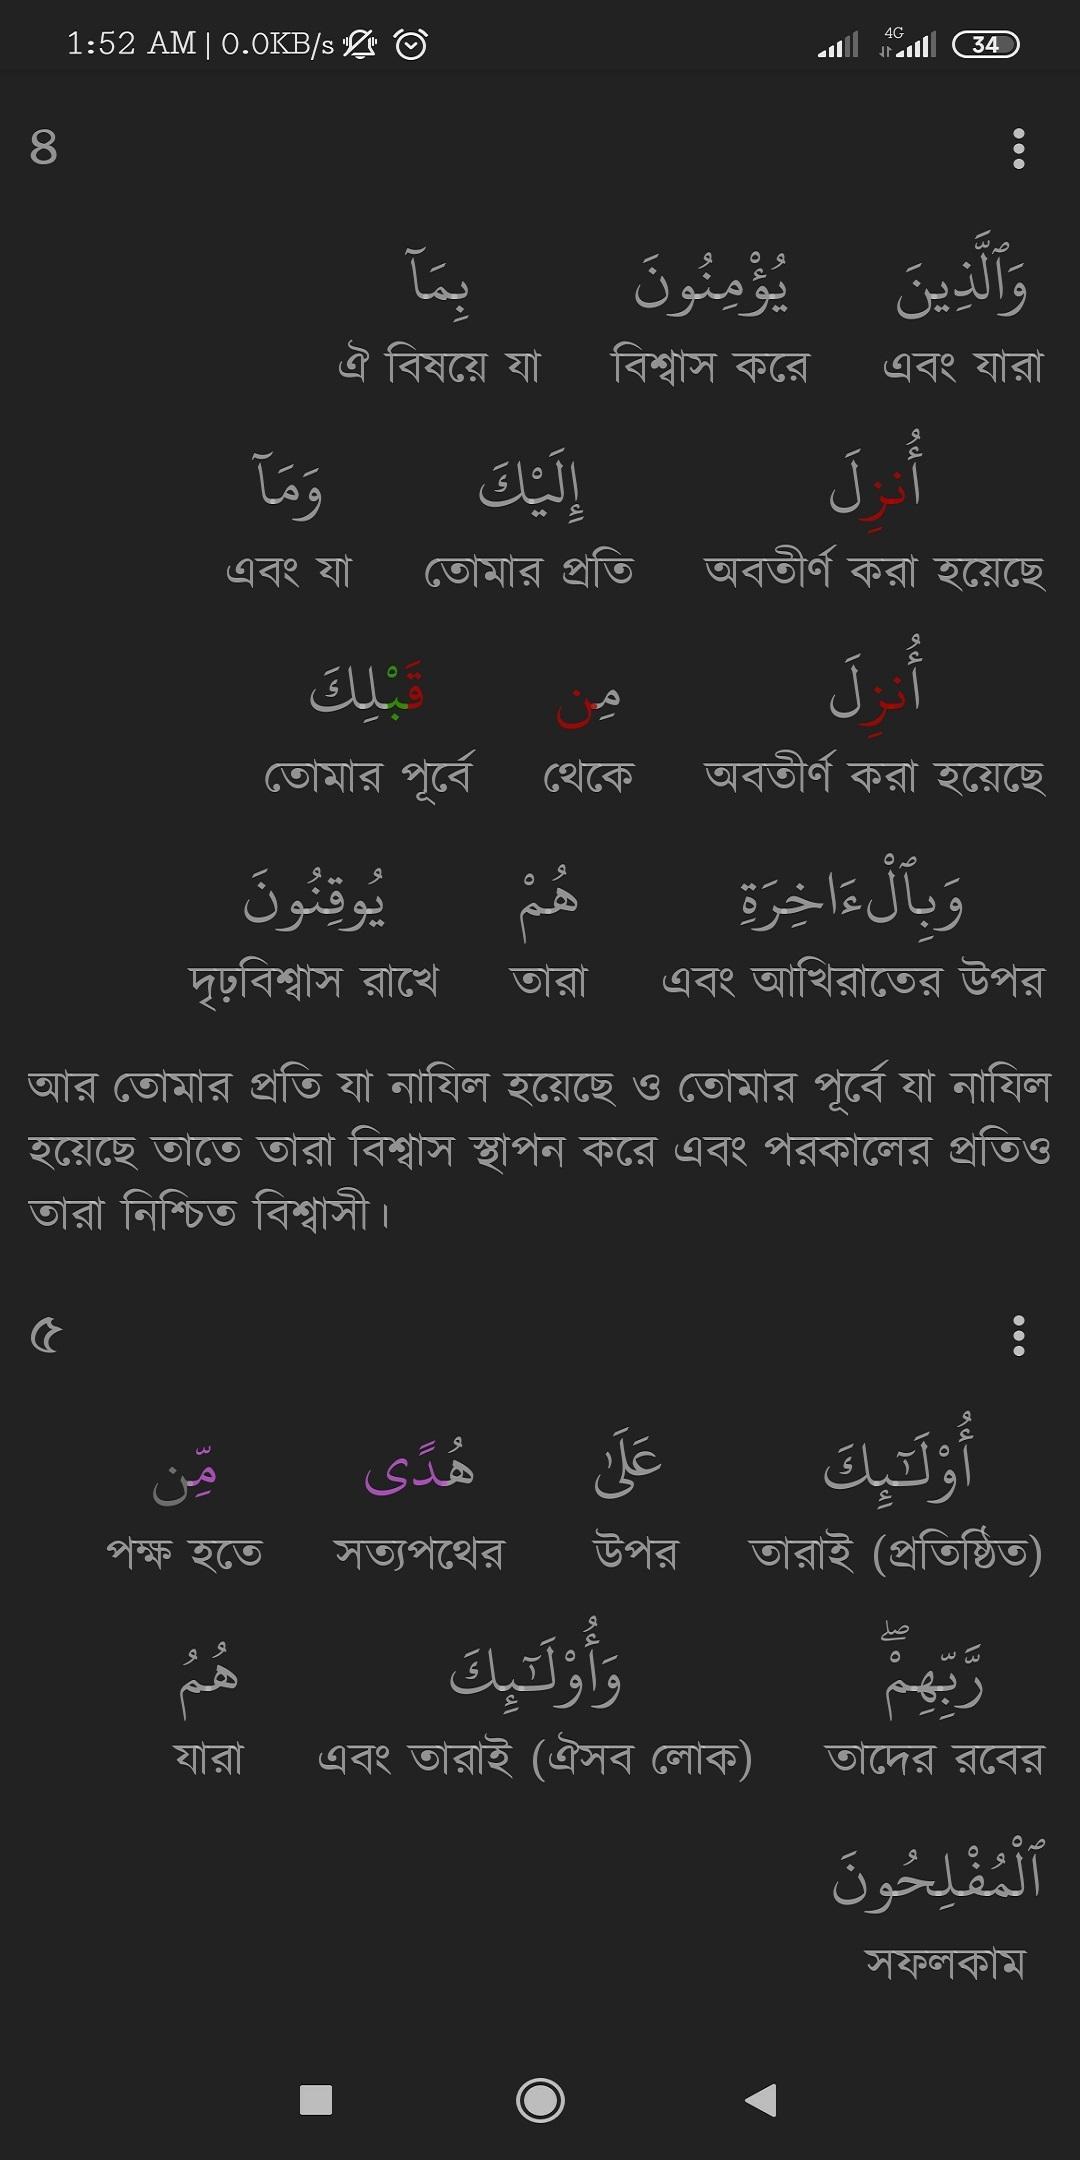 1:52 AM | 0.0KB/s 4G 34
৪
وَٱلَّذِينَ يُؤْمِنُونَ بِمَآ
এবং যারা বিশ্বাস করে ঐ বিষয়ে যা
أُنزِلَ إِلَيْكَ وَمَآ
অবতীর্ণ করা হয়েছে তোমার প্রতি এবং যা
أُنزِلَ مِن قَبْلِكَ
অবতীর্ণ করা হয়েছে থেকে তোমার পূর্বে
وَبِٱلْءَاخِرَةِ هُمْ يُوقِنُونَ
এবং আখিরাতের উপর তারা দৃঢ়বিশ্বাস রাখে
আর তোমার প্রতি যা নাযিল হয়েছে ও তোমার পূর্বে যা নাযিল
হয়েছে তাতে তারা বিশ্বাস স্থাপন করে এবং পরকালের প্রতিও
তারা নিশ্চিত বিশ্বাসী।
৫
أُو۟لَـٰٓئِكَ عَلَىٰ هُدًى مِّن
তারাই (প্রতিষ্ঠিত) উপর সত্যপথের পক্ষ হতে
رَّبِّهِمْ ۖ وَأُو۟لَـٰٓئِكَ هُمُ
তাদের রবের এবং তারাই (ঐসব লোক) যারা
ٱلْمُفْلِحُونَ
সফলকাম